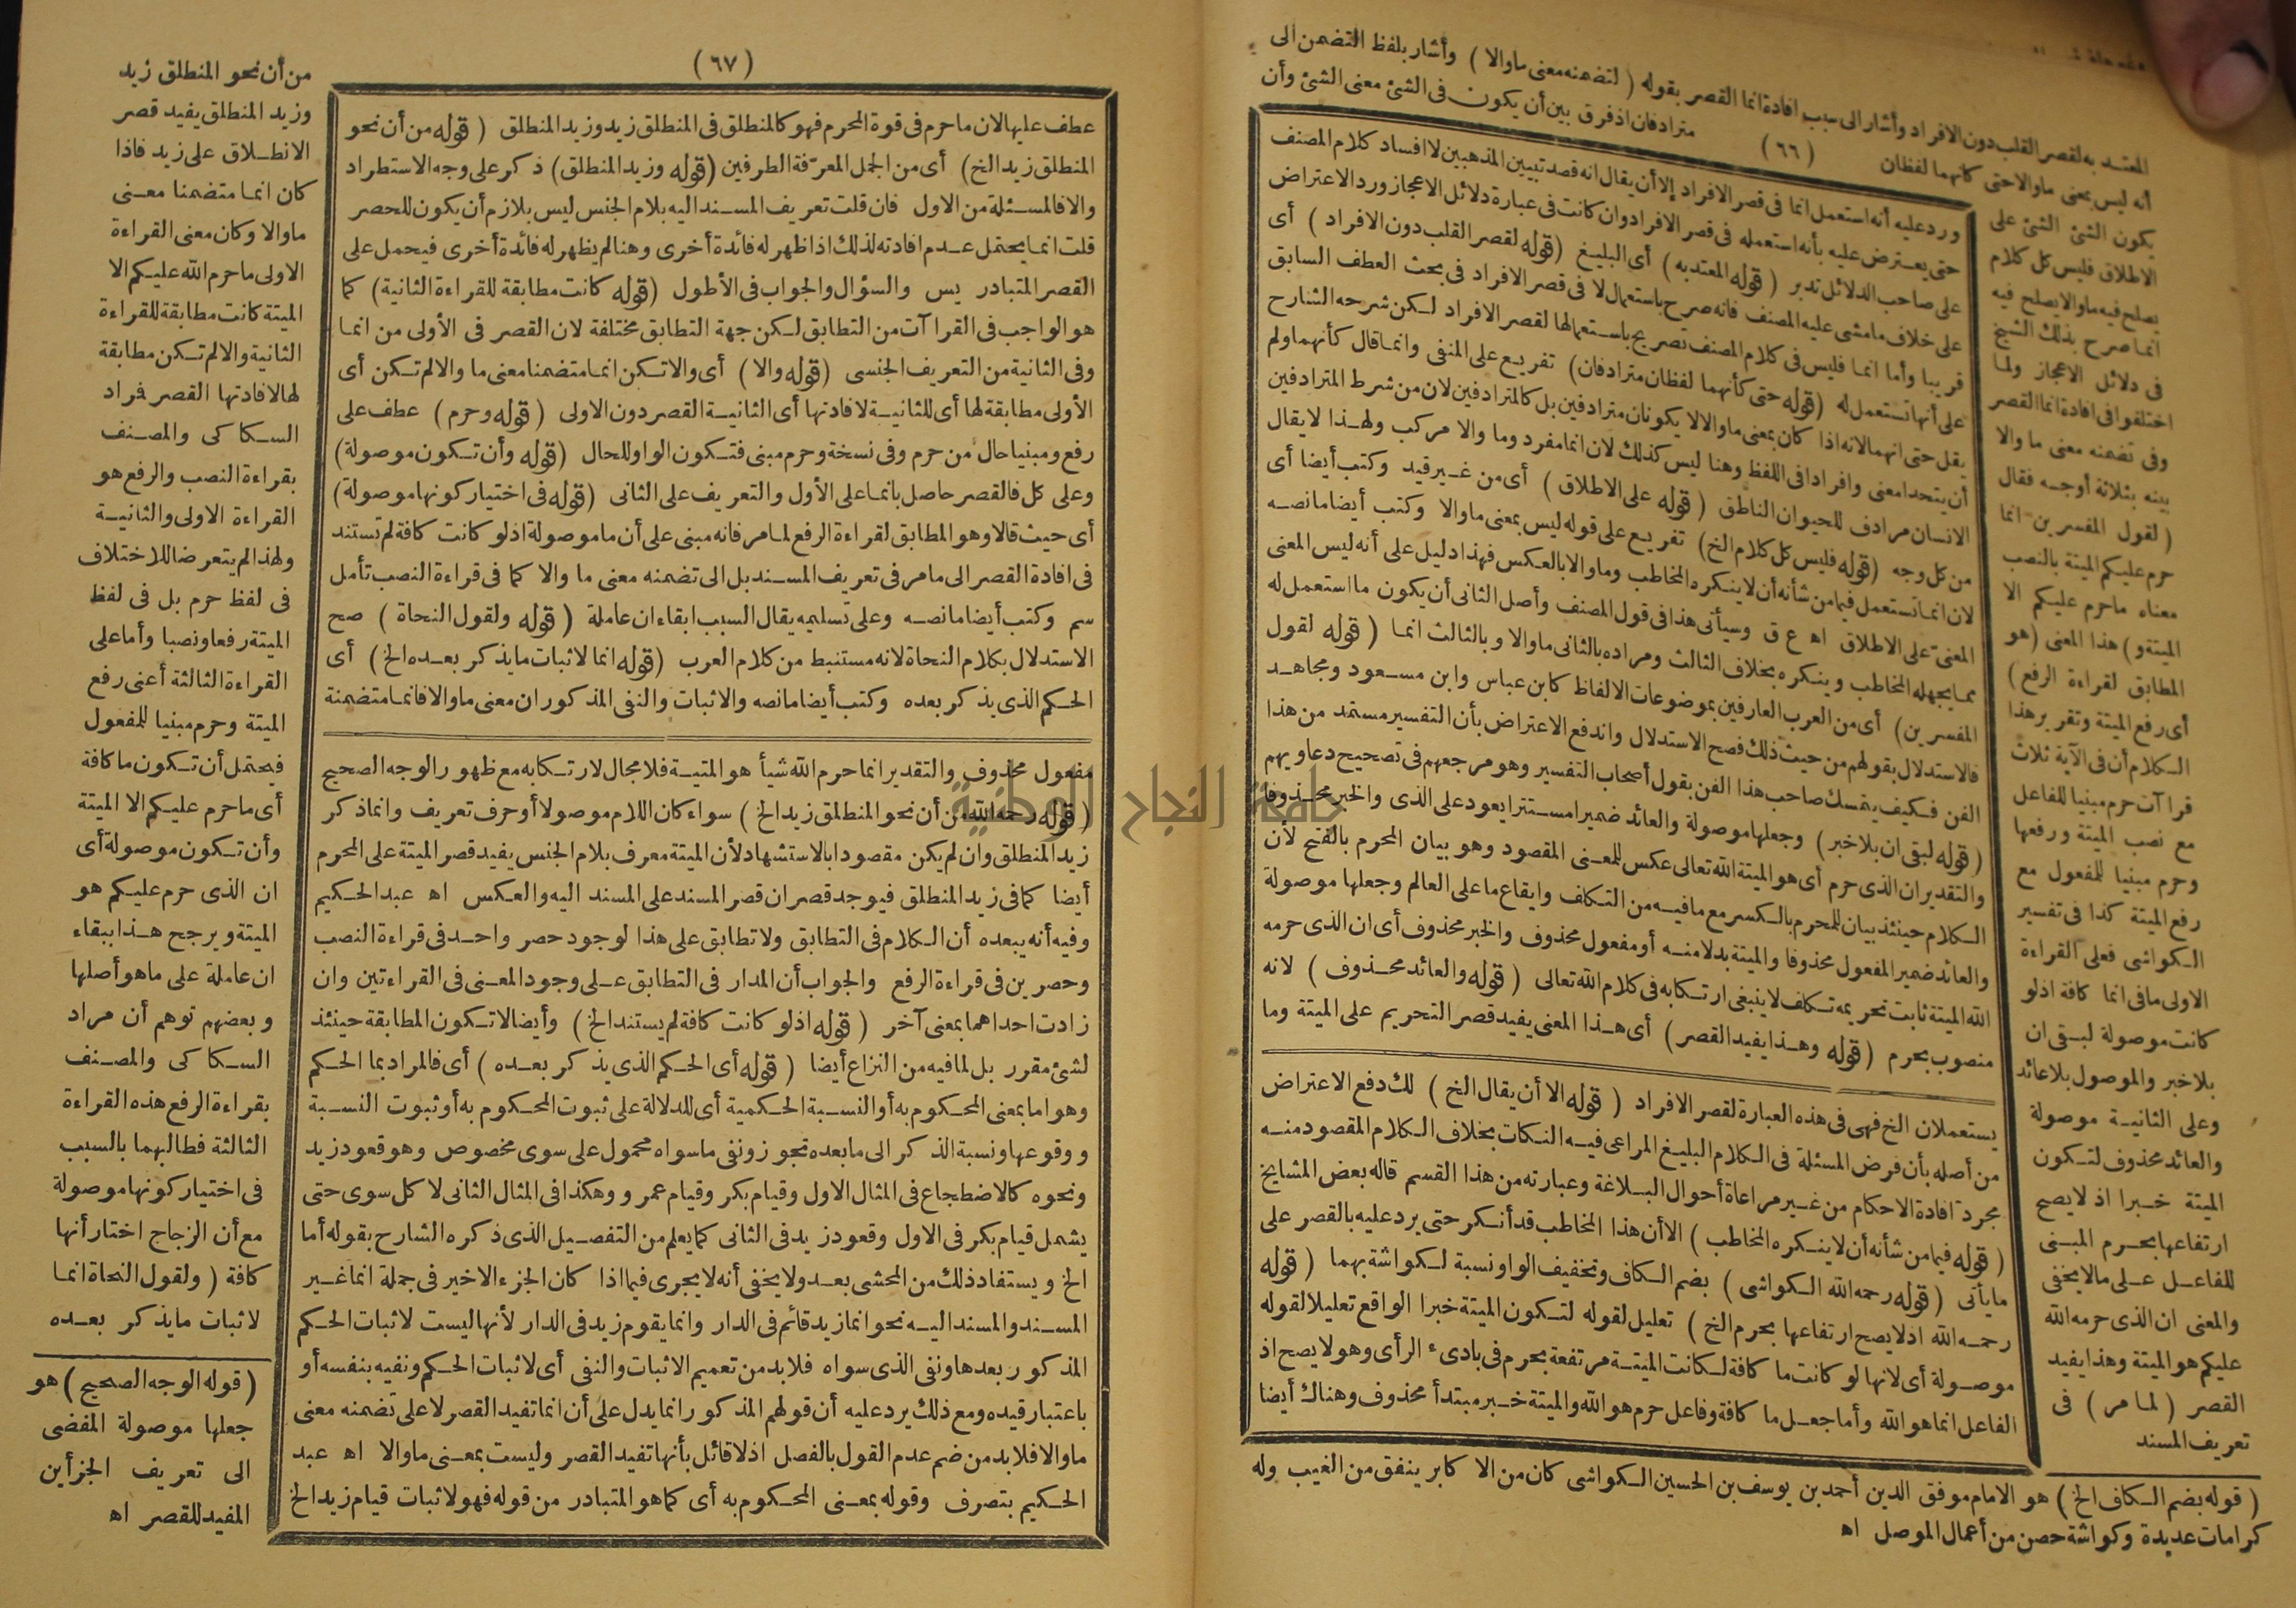 المعتد به لقصر القلب دون الافراد وأشار الى سبب افادة انما القصر بقوله ( لتضمنه معنى ما والا ) وأشار بلفظ التضمن الى
أنه ليس بمعنى ما والا حتى كأنهما لفظان
(٦٦)
مترادفان اذ فرق بين أن يكون فى الشئ معنى الشئ وأن
يكون الشئ الشئ على
الاطلاق فليس كل كلام
يصلح فيه ما والا يصلح فيه
انما صرح بذلك الشيخ
فى دلائل الاعجاز ولما
اختلفوا فى افادة انما القصر
وفى تضمنه معنى ما والا
بينه بثلاثة أوجه فقال
( لقول المفسرين انما
حرم عليكم الميتة بالنصب
معناه ما حرم عليكم الا
الميتة و) هذا المعنى (هو
المطابق لقراءة الرفع )
أى رفع الميتة وتقرير هذا
الكلام أن فى الآية ثلاث
قرا آت حرم مبنيا للفاعل
مع نصب الميتة ورفعها
وحرم مبنيا للمفعول مع
رفع الميتة كذا فى تفسير
الكواشى فعلى القراءة
الاولى ما فى انما كافة اذ لو
كانت موصولة لبقى ان
بلا خبر والموصول بلا عائد
وعلى الثانية موصولة
والعائد محذوف لتكون
الميتة خبرا اذ لا يصح
ارتفاعها بحرم المبنى
للفاعل على ما لا يخفى
والمعنى ان الذى حرمه الله
عليكم هو الميتة وهذا يفيد
القصر ( لما مر ) فى
تعريف المسند
ورد عليه أنه استعمل انما فى قصر الافراد إلا أن يقال انه قصد تبيين المذهبين لا افساد كلام المصنف
حتى يعترض عليه بأنه استعمله فى قصر الافراد وان كانت فى عبارة دلائل الاعجاز ورد الاعتراض
على صاحب الدلائل تدبر ( قوله المعتد به ) أى البليغ (قوله لقصر القلب دون الافراد ) أى
على خلاف ما مشى عليه المصنف فانه صرح باستعمال لا فى قصر الافراد فى بحث العطف السابق
قريبا وأما انما فليس فى كلام المصنف تصريح باستعمالها لقصر الافراد لكن شرحه الشارح
على أنها تستعمل له (قوله حتى كأنهما لفظان مترادفان) تفريع على المنفى وانما قال كأنهما ولم
يقل حتى انهما لانه اذا كان بمعنى ما والا لا يكونان مترادفين بل كالمترادفين لان من شرط المترادفين
أن يتحدا معنى وافرادا فى اللفظ وهنا ليس كذلك لان انما مفرد وما والا مركب ولهذا لا يقال
الانسان مرادف للحيوان الناطق ( قوله على الاطلاق ) أى من غير قيد وكتب أيضا أى
من كل وجه (قوله فليس كل كلام الخ) تفريع على قوله ليس بمعنى ما والا وكتب أيضا ما نصه
لان انما تستعمل فيما من شأنه أن لا ينكره المخاطب وما والا بالعكس فهذا دليل على أنه ليس المعنى
المعنى على الاطلاق اه ع ق وسيأتى هذا فى قول المصنف وأصل الثانى أن يكون ما استعمل له
مما يجهله المخاطب وينكره بخلاف الثالث ومراده بالثانى ما والا وبالثالث انما ( قوله لقول
المفسرين ) أى من العرب العارفين بموضوعات الالفاظ كابن عباس وابن مسعود ومجاهد
فالاستدلال بقولهم من حيث ذلك فصح الاستدلال واندفع الاعتراض بأن التفسير مستمد من هذا
الفن فكيف يتمسك صاحب هذا الفن بقول أصحاب التفسير وهو مرجعهم فى تصحيح دعاويهم
( قوله لبقى ان بلا خبر ) وجعلها موصولة والعائد ضميرا مستترا يعود على الذى والخبر محذوفا
والتقدير ان الذى حرم أى هو الميتة الله تعالى عكس للمعنى المقصود وهو بيان المحرم بالفتح لأن
الكلام حينئذ بيان للمحرم بالكسر مع ما فيه من التكلف وايقاع ما على العالم وجعلها موصولة
والعائد ضمير المفعول محذوفا والميتة بدلا منه أو مفعول محذوف والخبر محذوف أى ان الذى حرمه
الله الميتة ثابت تحريمه تكلف لا ينبغى ارتكابه فى كلام الله تعالى ( قوله والعائد محذوف ) لانه
منصوب بحرم ( قوله وهذا يفيد القصر ) أى هذا المعنى يفيد قصر التحريم على الميتة وما
يستعملان الخ فهى فى هذه العبارة لقصر الافراد ( قوله الا أن يقال الخ ) لك دفع الاعتراض
من أصله بأن فرض المسئلة فى الكلام البليغ المراعى فيه النكات بخلاف الكلام المقصود منه
مجرد افادة الاحكام من غير مراعاة أحوال البلاغة وعبارته من هذا القسم قاله بعض المشايخ
( قوله فيما من شأنه أن لا ينكره المخاطب ) الا أن هذا المخاطب قد أنكر حتى يرد عليه بالقصر على
ما يأتى ( قوله رحمه الله الكواشى ) بضم الكاف وتخفيف الواو نسبة لكواشة بهما ( قوله
رحمه الله اذ لا يصح ارتفاعها بحرم الخ ) تعليل لقوله لتكون الميتة خبرا الواقع تعليلا لقوله
موصولة أى لانها لو كانت ما كافة لكانت الميتة مرتفعة بحرم فى بادىء الرأى وهو لا يصح اذ
الفاعل انما هو الله وأما جعل ما كافة وفاعل حرم هو الله والميتة خبر مبتدأ محذوف وهناك أيضا
( قوله بضم الكاف الخ ) هو الامام موفق الدين أحمد بن يوسف بن الحسين الكواشى كان من الا كابر ينفق من الغيب وله
كرامات عديدة وكواشة حصن من أعمال الموصل اه
(٦٧)
عطف عليها لان ما حرم فى قوة المحرم فهو كالمنطلق فى المنطلق زيد وزيد المنطلق ( قوله من أن نحو
المنطلق زيد الخ ) أى من الجمل المعرّفة الطرفين (قوله وزيد المنطلق) ذكر على وجه الاستطراد
والا فالمسئلة من الاول فان قلت تعريف المسند اليه بلام الجنس ليس بلازم أن يكون للحصر
قلت انما يحتمل عدم افادته لذلك اذا ظهر له فائدة أخرى وهنا لم يظهر له فائدة أخرى فيحمل على
القصر المتبادر يس والسؤال والجواب فى الأطول (قوله كانت مطابقة للقراءة الثانية) كما
هو الواجب فى القرا آت من التطابق لكن جهة التطابق مختلفة لان القصر فى الأولى من انما
وفى الثانية من التعريف الجنسى (قوله والا ) أى والا تكن انما متضمنا معنى ما والا لم تكن أى
الأولى مطابقة لها أى للثانية لافادتها أى الثانية القصر دون الاولى ( قوله وحرم ) عطف على
رفع ومبنيا حال من حرم وفى نسخة وحرم مبنى فتكون الواو للحال (قوله وأن تكون موصولة)
وعلى كل فالقصر حاصل بانما على الأول والتعريف على الثانى (قوله فى اختيار كونها موصولة)
أى حيث قالا وهو المطابق لقراءة الرفع لما مر فانه مبنى على أن ما موصولة اذ لو كانت كافة لم تستند
فى افادة القصر الى ما مر فى تعريف المسند بل الى تضمنه معنى ما والا كما فى قراءة النصب تأمل
سم وكتب أيضا ما نصه وعلى تسليمه يقال السبب ابقاء ان عاملة ( قوله ولقول النحاة ) صح
الاستدلال بكلام النحاة لانه مستنبط من كلام العرب (قوله انما لاثبات ما يذكر بعده الخ ) أى
الحكم الذى يذكر بعده وكتب أيضا ما نصه والاثبات والنفى المذكوران معنى ما والا فانما متضمنة
مفعول محذوف والتقدير انما حرم الله شيأ هو الميتية فلا مجال لارتكابه مع ظهور الوجه الصحيح
( قوله رحمه الله من أن نحو المنطلق زيد الخ ) سواء كان اللام موصولا أو حرف تعريف وانما ذكر
زيد المنطلق وان لم يكن مقصودا بالاستشهاد لأن الميتة معرف بلام الجنس يفيد قصر الميتة على المحرم
أيضا كما فى زيد المنطلق فيوجد قصران قصر المسند على المسند اليه والعكس اه عبد الحكيم
وفيه أنه يبعده أن الكلام فى التطابق ولا تطابق على هذا لوجود حصر واحد فى قراءة النصب
وحصرين فى قراءة الرفع والجواب أن المدار فى التطابق على وجود المعنى فى القراءتين وان
زادت احداهما بمعنى آخر ( قوله اذ لو كانت كافة لم يستند الخ ) وأيضا لا تكون المطابقة حينئذ
لشئ مقرر بل لما فيه من النزاع أيضا ( قوله أى الحكم الذى يذكر بعده ) أى فالمراد بما الحكم
وهو اما بمعنى المحكوم به أو النسبة الحكمية أى للدلالة على ثبوت المحكوم به أو ثبوت النسبة
ووقوعها ونسبة الذكر الى ما بعده تجوز ونفى ما سواه محمول على سوى مخصوص وهو قعود زيد
ونحوه كالاضطجاع فى المثال الاول وقيام بكر وقيام عمرو وهكذا فى المثال الثانى لا كل سوى حتى
يشمل قيام بكر فى الاول وقعود زيد فى الثانى كما يعلم من التفصيل الذى ذكره الشارح بقوله أما
الخ ويستفاد ذلك من المحشى بعد ولا يخفى أنه لا يجرى فيما اذا كان الجزء الاخير فى جملة انما غير
المسند والمسند اليه نحو انما زيد قائم فى الدار وانما يقوم زيد فى الدار لأنها ليست لاثبات الحكم
المذكور بعدها ونفى الذى سواه فلا بد من تعميم الاثبات والنفى أى لاثبات الحكم ونفيه بنفسه أو
باعتبار قيده ومع ذلك يرد عليه أن قولهم المذكور انما يدل على أن انما تفيد القصر لا على تضمنه معنى
ما والا فلا بد من ضم عدم القول بالفصل اذ لا قائل بأنها تفيد القصر وليست بمعنى ما والا اه عبد
الحكيم بتصرف وقوله بمعنى المحكوم به أى كما هو المتبادر من قوله فهو لاثبات قيام زيد الخ
من أن نحو المنطلق زيد
وزيد المنطلق يفيد قصر
الانطلاق على زيد فاذا
كان انما متضمنا معنى
ما والا وكان معنى القراءة
الاولى ما حرم الله عليكم الا
الميتة كانت مطابقة للقراءة
الثانية والا لم تكن مطابقة
لها لافادتها القصر فراد
السكاكى والمصنف
بقراءة النصب والرفع هو
القراءة الاولى والثانية
ولهذا لم يتعرضا للاختلاف
فى لفظ حرم بل فى لفظ
الميتة رفعا ونصبا وأما على
القراءة الثالثة أعنى رفع
الميتة وحرم مبنيا للمفعول
فيحتمل أن تكون ما كافة
أى ما حرم عليكم الا الميتة
وأن تكون موصولة أى
ان الذى حرم عليكم هو
الميتة ويرجح هذا ببقاء
ان عاملة على ما هو أصلها
وبعضهم توهم أن مراد
السكاكى والمصنف
بقراءة الرفع هذه القراءة
الثالثة فطالبهما بالسبب
فى اختيار كونها موصولة
مع أن الزجاج اختار أنها
كافة ( ولقول النحاة انما
لاثبات ما يذكر بعده
( قوله الوجه الصحيح ) هو
جعلها موصولة المفضى
الى تعريف الجزأين
المفيد للقصر اه
جامعة النجاح الوطنية